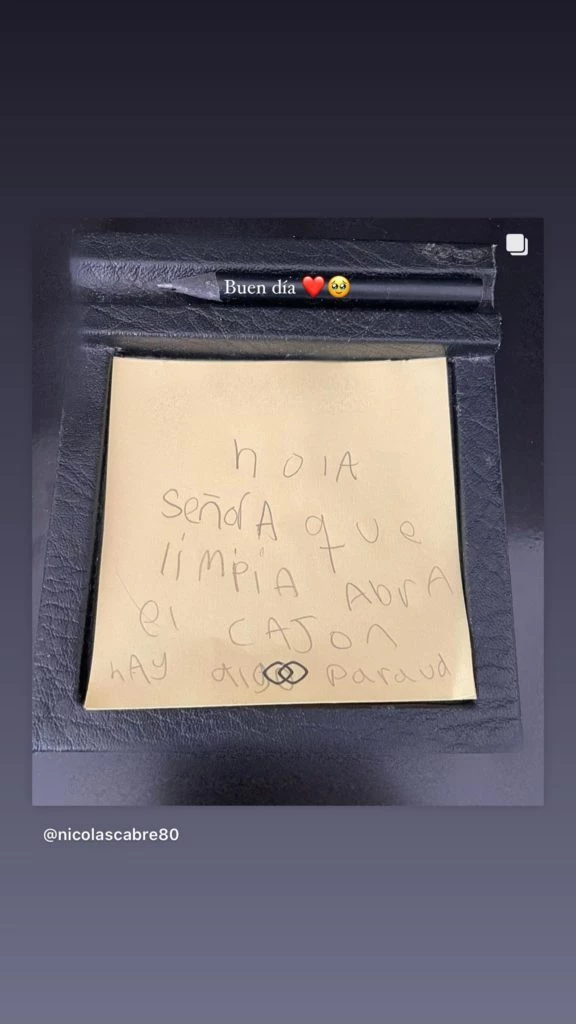 Buen día ❤️🥹
hOlA
SeñorA que
limpiA AbrA
el CAJon
hAY algo para ud
@nicolascabre80